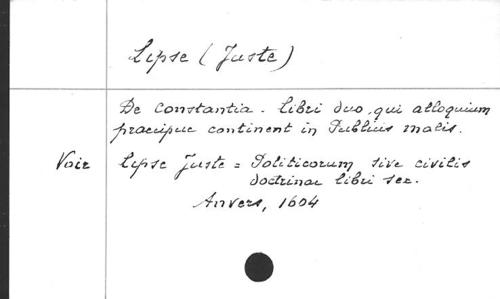 Lipse (Juste)
De Constantia. Libri duo, qui alloquium
praecipue continent in Publius malis.
Voir Lipse Juste = Politicorum sive civilis
doctrinae libri sex.
Anvers, 1604